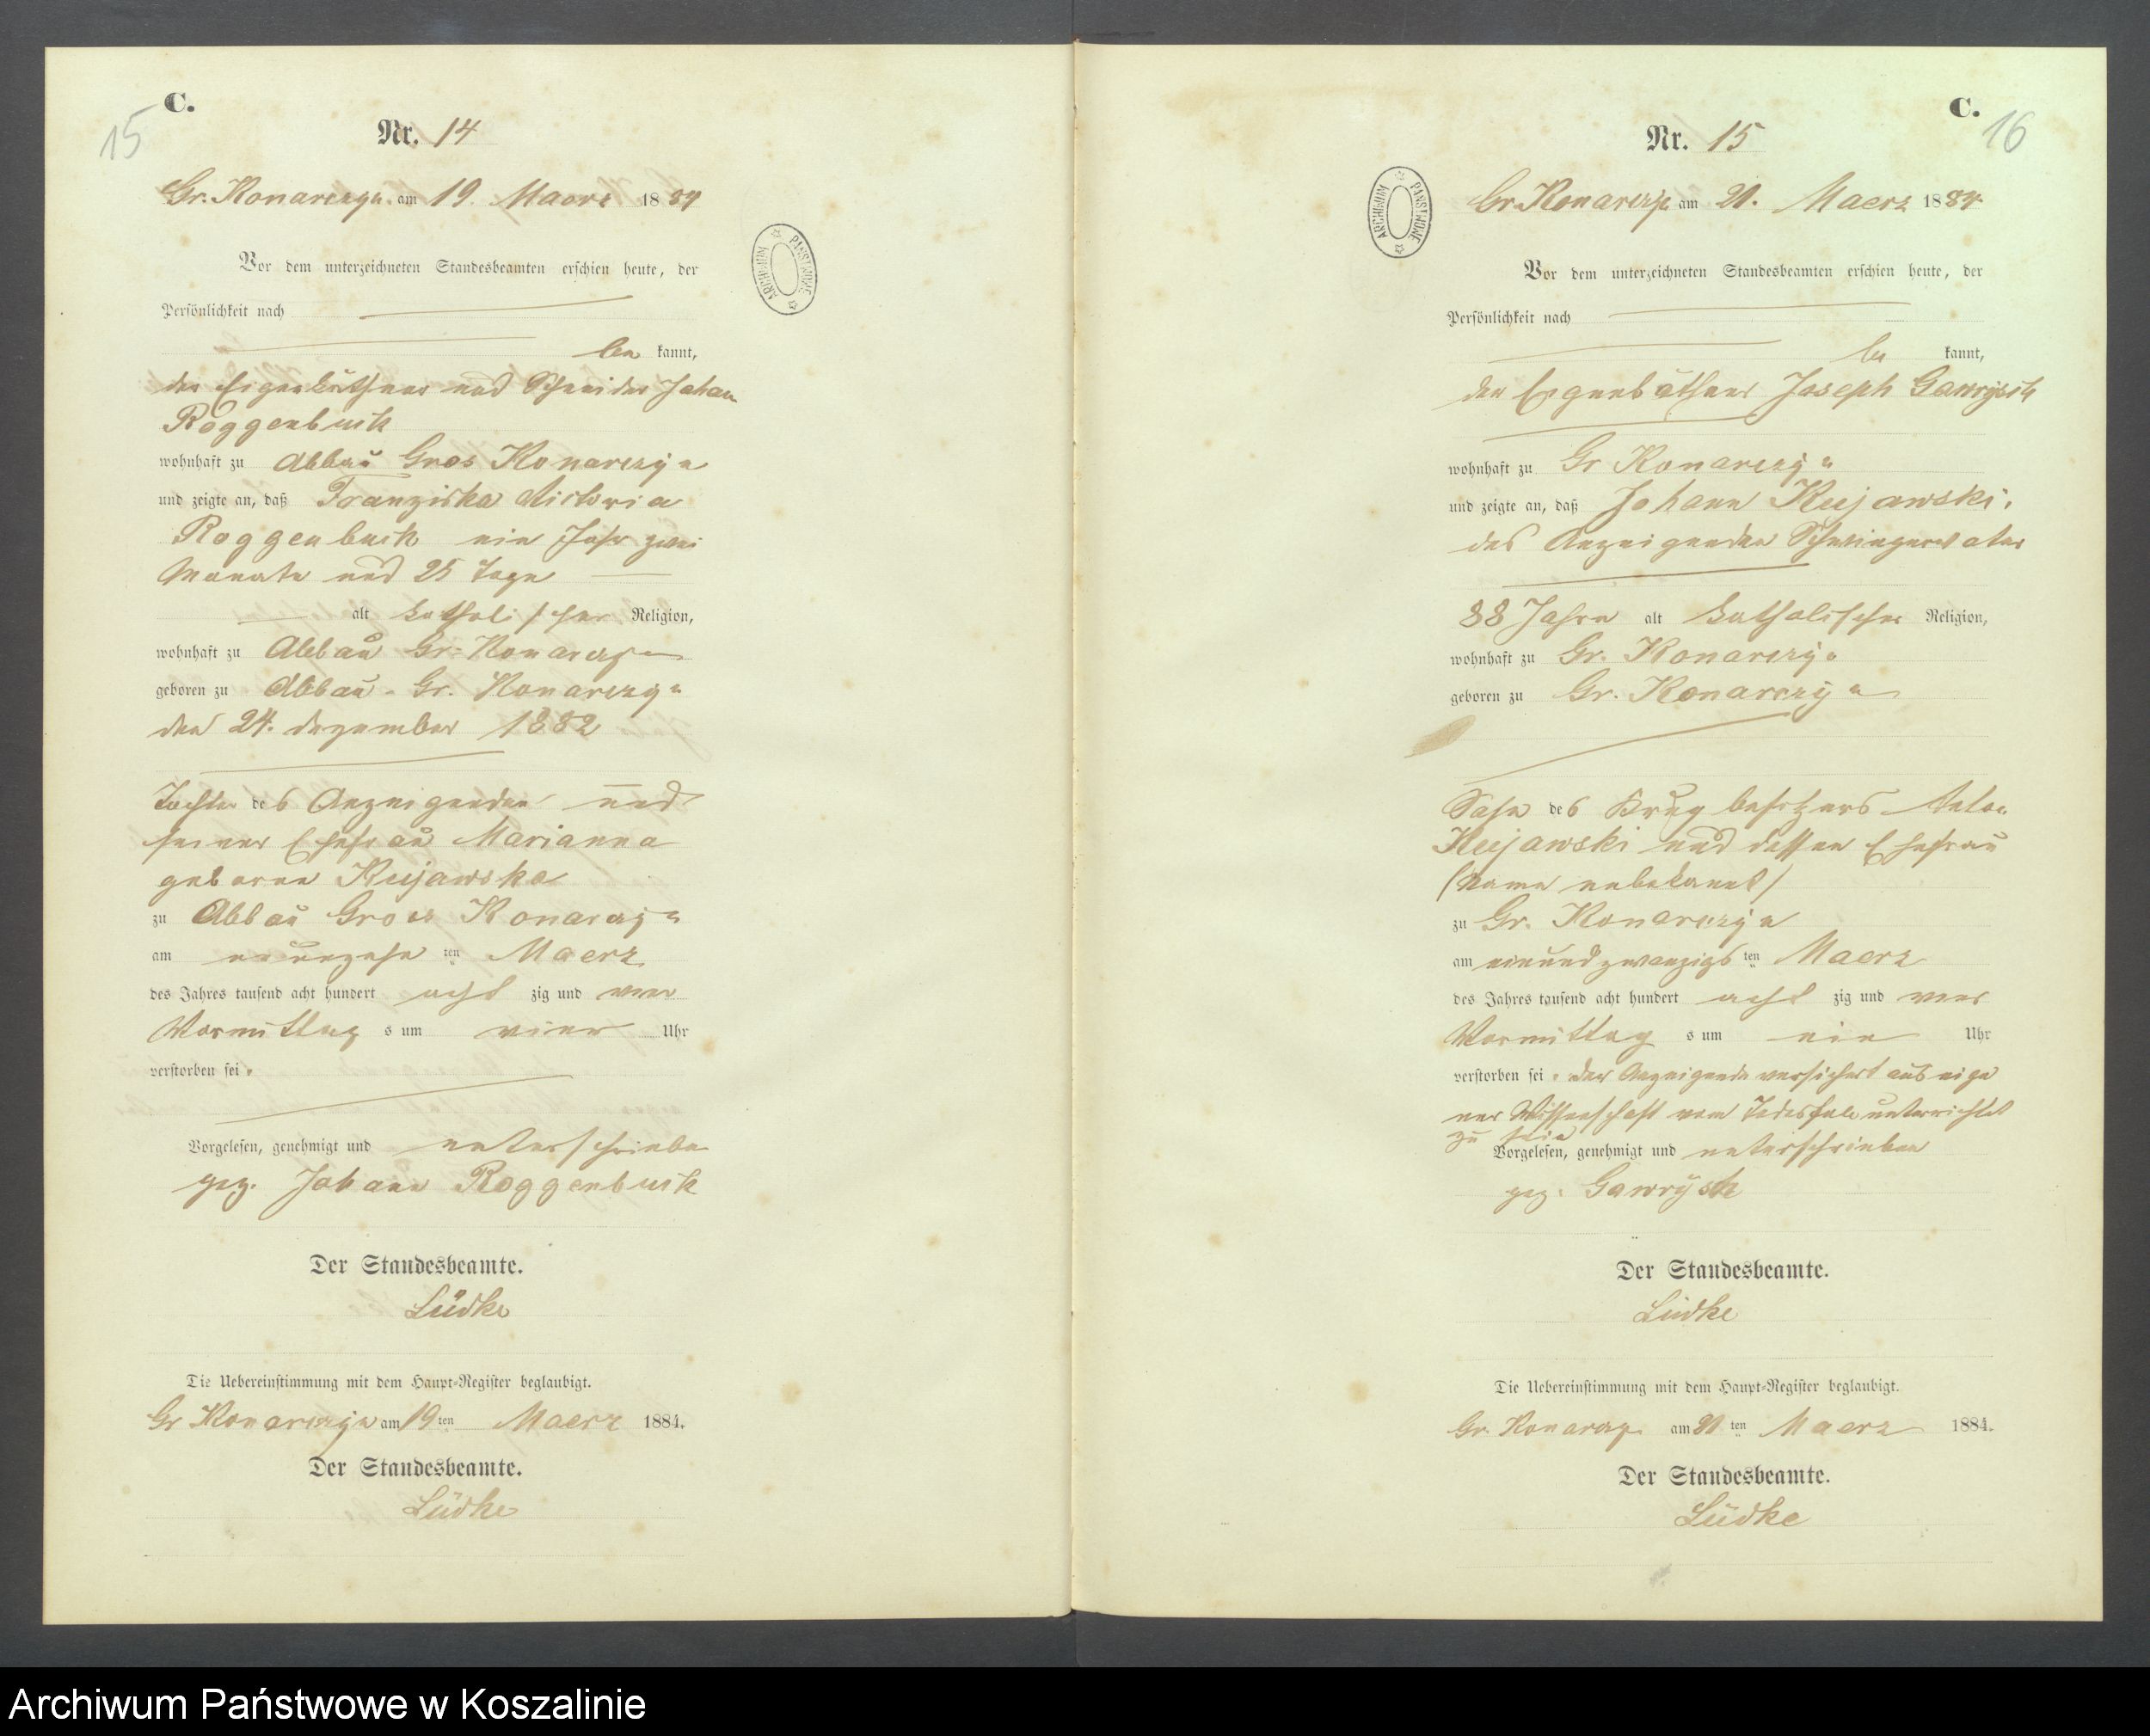 15
C.
Nr. 14
Gr. Konarczyn am 19. Maerz 1884
ARCHIWUM PAŃSTWOWE
Vor dem unterzeichneten Standesbeamten erschien heute, der
Persönlichkeit nach
be kannt,
der Eigenkäthner und Schneider Johann
Roggenbuck
wohnhaft zu Abbau Gros Konarczyn
und zeigte an, daß Franziska Victoria
Roggenbuck ein Jahr zwei
Monate und 25 Tage
alt katholischer Religion,
wohnhaft zu Abbau Gr. Konarczyn
geboren zu Abbau Gr. Konarczyn
den 24. Dezember 1882
Tochter des Anzeigenden und
seiner Ehefrau Marianna
geborne Kujawska
zu Abbau Gros Konarczyn
am neunzehn ten Maerz
des Jahres tausend acht hundert acht zig und vier
Vormittag s um vier Uhr
verstorben sei.
Vorgelesen, genehmigt und unterschrieben
gez. Johann Roggenbuck
Der Standesbeamte.
Lüdke
Die Uebereinstimmung mit dem Haupt-Register beglaubigt.
Gr Konarczyn am 19 ten Maerz 1884.
Der Standesbeamte.
Lüdke
C.
16
Nr. 15
Gr. Konarczyn am 21. Maerz 1884.
ARCHIWUM PAŃSTWOWE
Vor dem unterzeichneten Standesbeamten erschien heute, der
Persönlichkeit nach
be kannt,
der Eigenkäthner Joseph Gawrysch
wohnhaft zu Gr Konarczyn
und zeigte an, daß Johann Kujawski,
des Anzeigenden Schwiegervater
88 Jahre alt katholischer Religion,
wohnhaft zu Gr. Konarczyn
geboren zu Gr. Konarczyn
Sohn des Krugbesitzers
Kujawski und dessen Ehefrau
(Name unbekannt)
zu Gr. Konarczyn
am einundzwanzigs ten Maerz
des Jahres tausend acht hundert acht zig und vier
Vormittag s um ein Uhr
verstorben sei. der Anzeigende versichert aus eige
ner Wissenschaft vom Todesfalle unterrichtet
zu sein
Vorgelesen, genehmigt und unterschrieben
gez. Gawrysch
Der Standesbeamte.
Lüdke
Die Uebereinstimmung mit dem Haupt-Register beglaubigt.
Gr. Konarczyn am 21 ten Maerz 1884.
Der Standesbeamte.
Lüdke
Archiwum Państwowe w Koszalinie